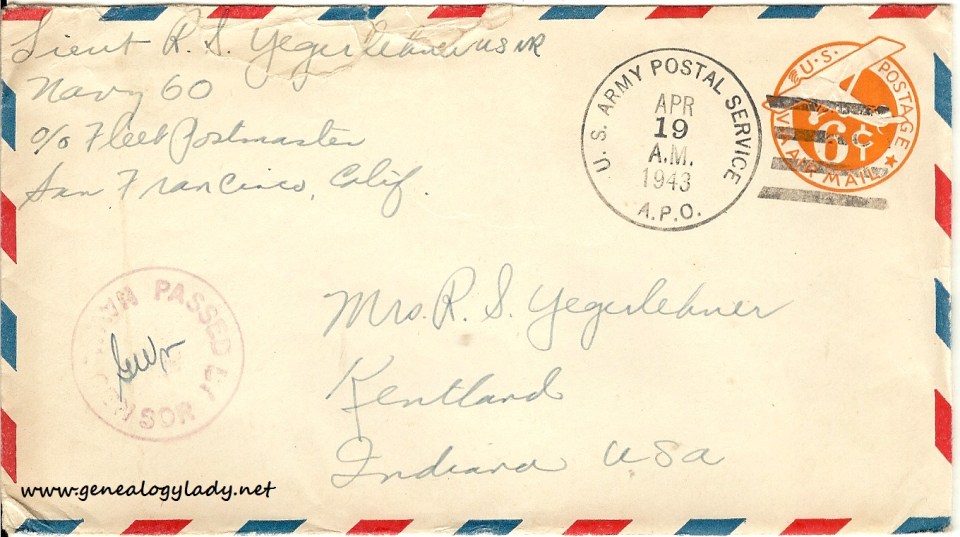 Lieut R. S. Yegerlehner USNR
Navy 60
c/o Fleet Postmaster
San Francisco, Calif.
U.S. ARMY POSTAL SERVICE
APR
19
A.M.
1943
A.P.O.
U.S. POSTAGE
6¢
VIA AIR MAIL
PASSED BY
Mrs. R. S. Yegerlehner
Kentland
Indiana USA
www.genealogylady.net